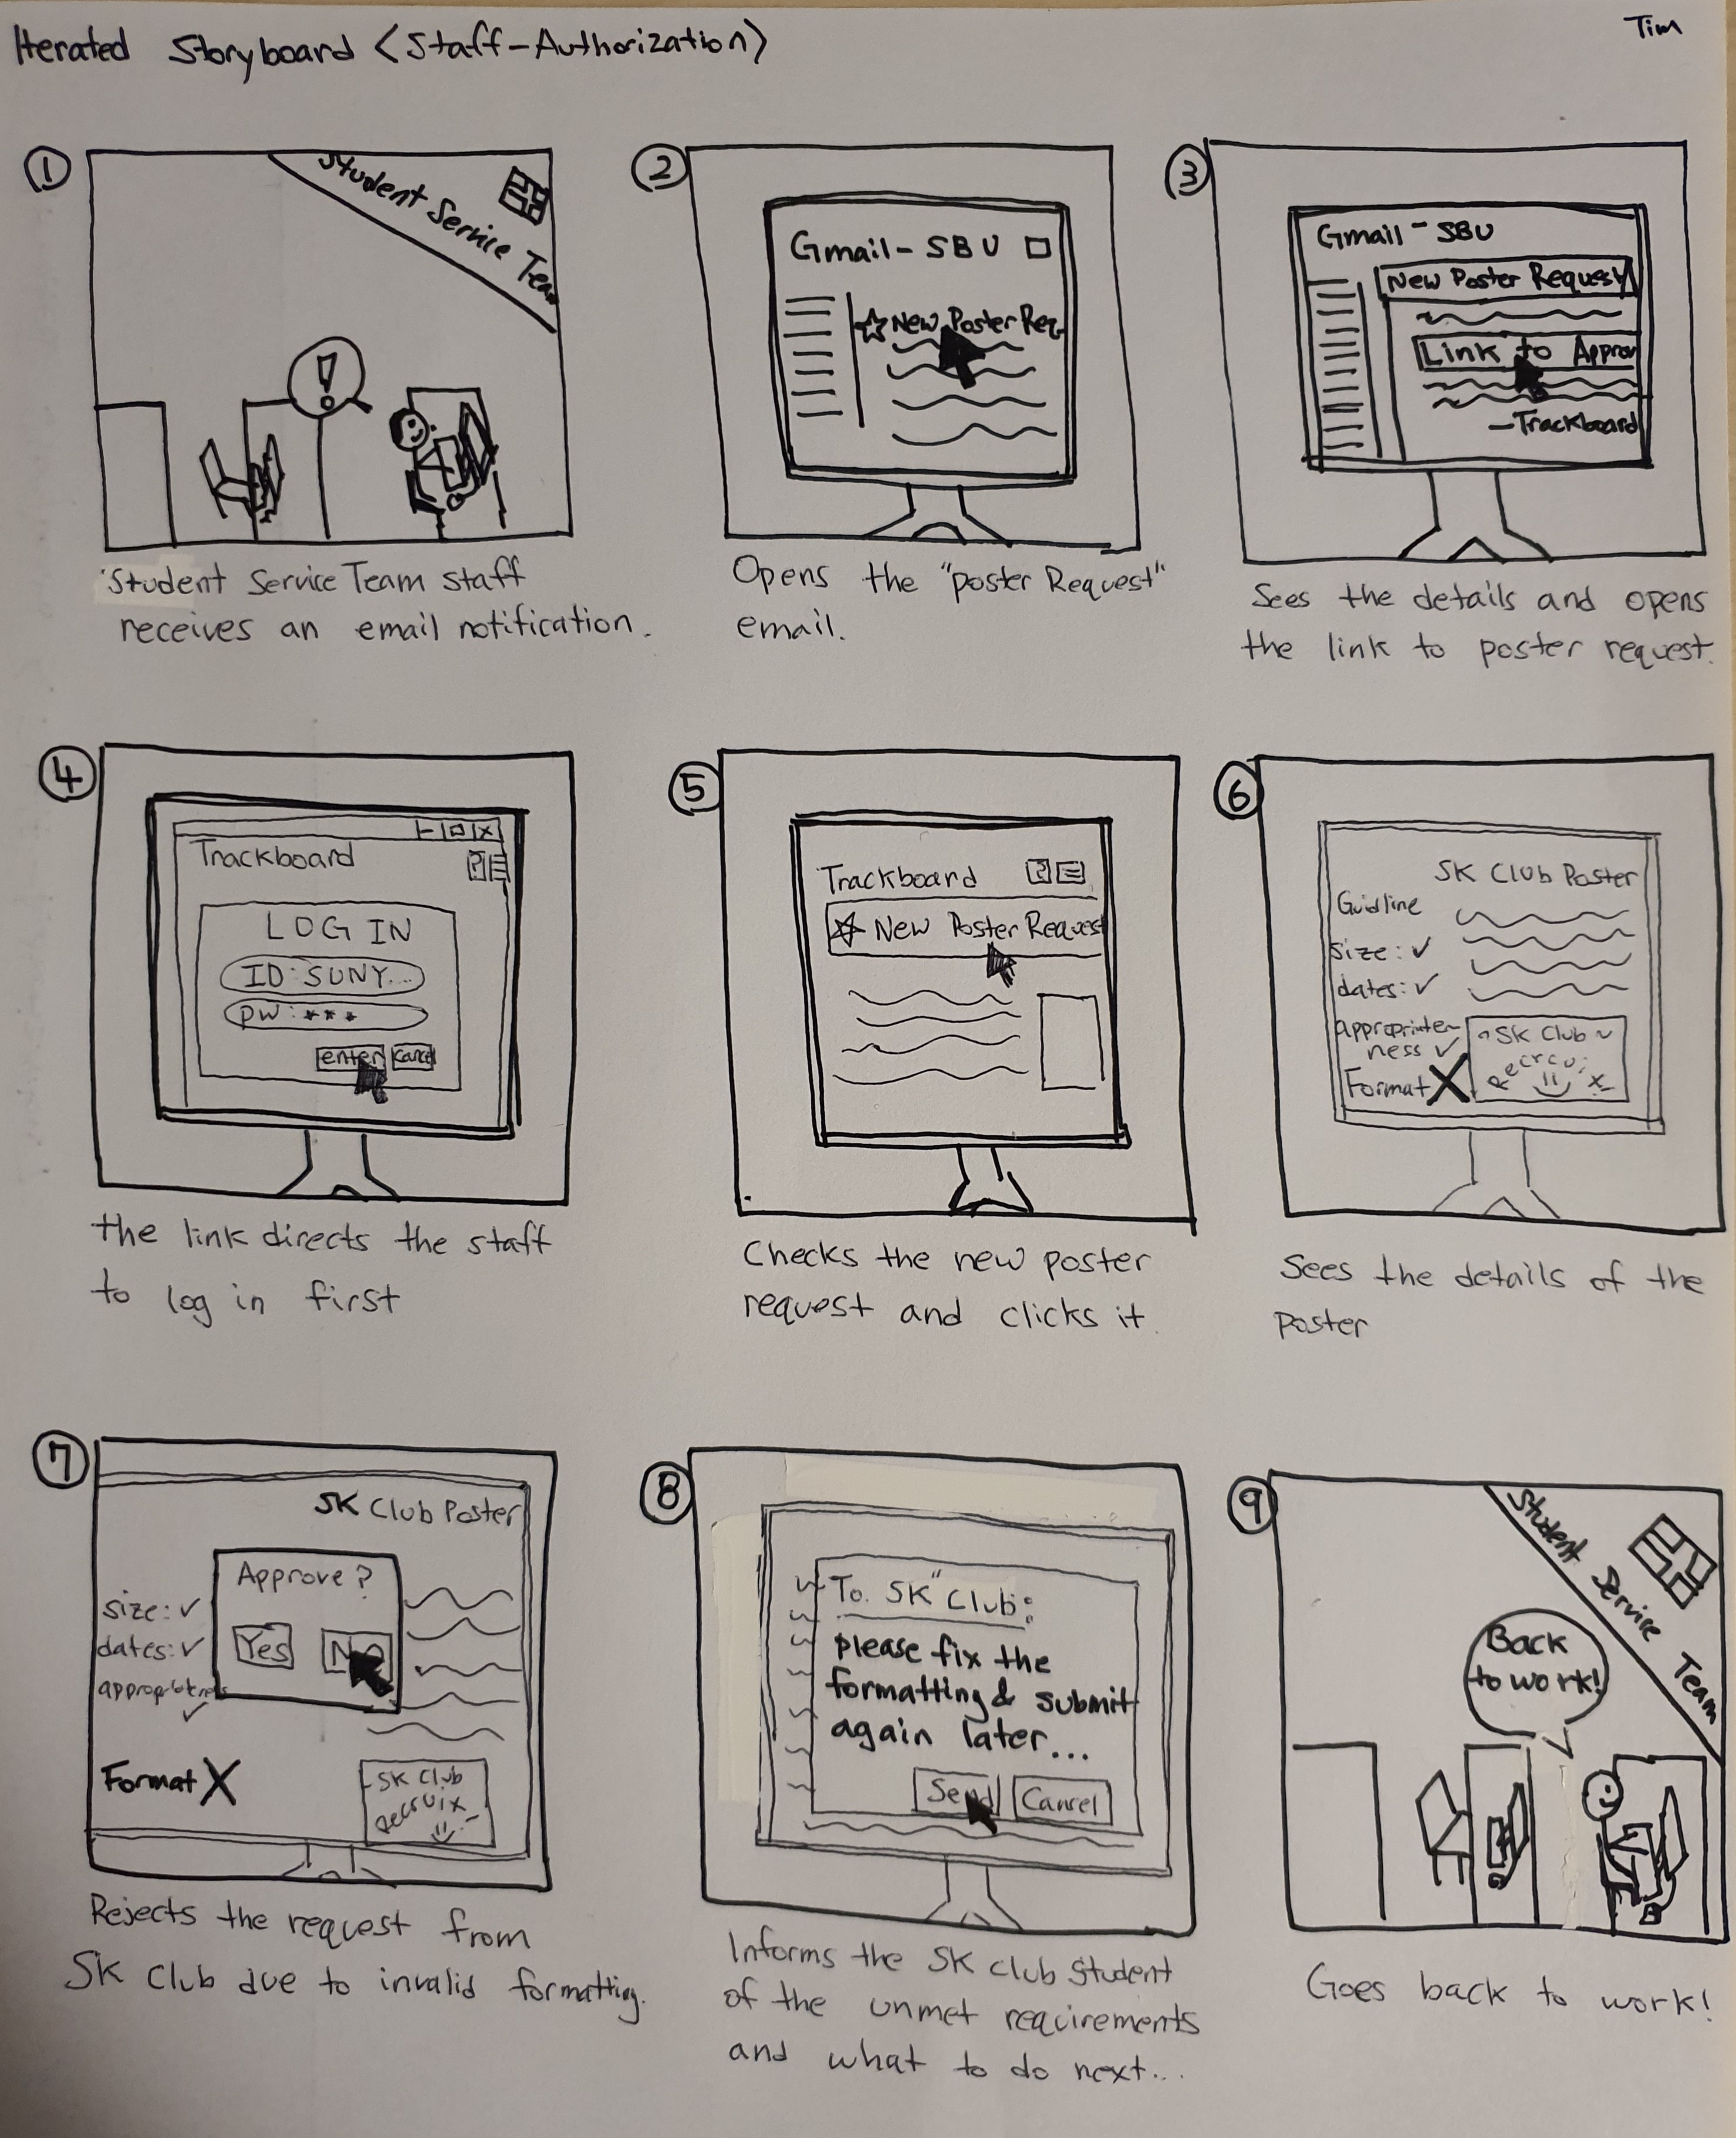 Iterated Storyboard <Staff-Authorization>
Tim
1
Student Service Team
!
Student Service Team staff
receives an email notification.
2
Gmail - SBU
New Poster Req
Opens the "poster Request"
email.
3
Gmail - SBU
New Poster Request
Link to Approv
-Trackboard
Sees the details and opens
the link to poster request.
4
Trackboard
?
LOG IN
ID: SUNY...
PW: ***
enter
Cancel
the link directs the staff
to log in first
5
Trackboard
?
New Poster Request
Checks the new poster
request and clicks it.
6
SK Club Poster
Guidline
size: ✓
dates: ✓
appropriate-
ness ✓
Format X
~SK Club~
Recruit
Sees the details of the
poster
7
SK Club Poster
Approve?
Yes
No
size: ✓
dates: ✓
✓
Format X
SK Club
Rejects the request from
SK Club due to invalid formatting.
8
To. SK" Club:
please fix the
formatting & submit
again later...
Send
Cancel
Informs the SK club student
of the unmet requirements
and what to do next...
9
Student Service Team
Back
to work!
Goes back to work!